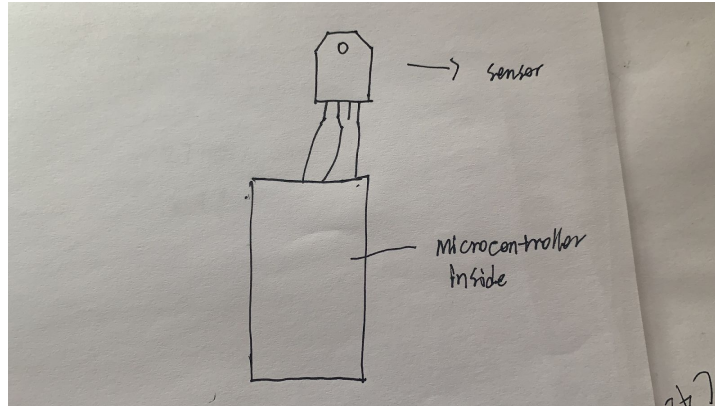 sensor
Microcontroller
inside